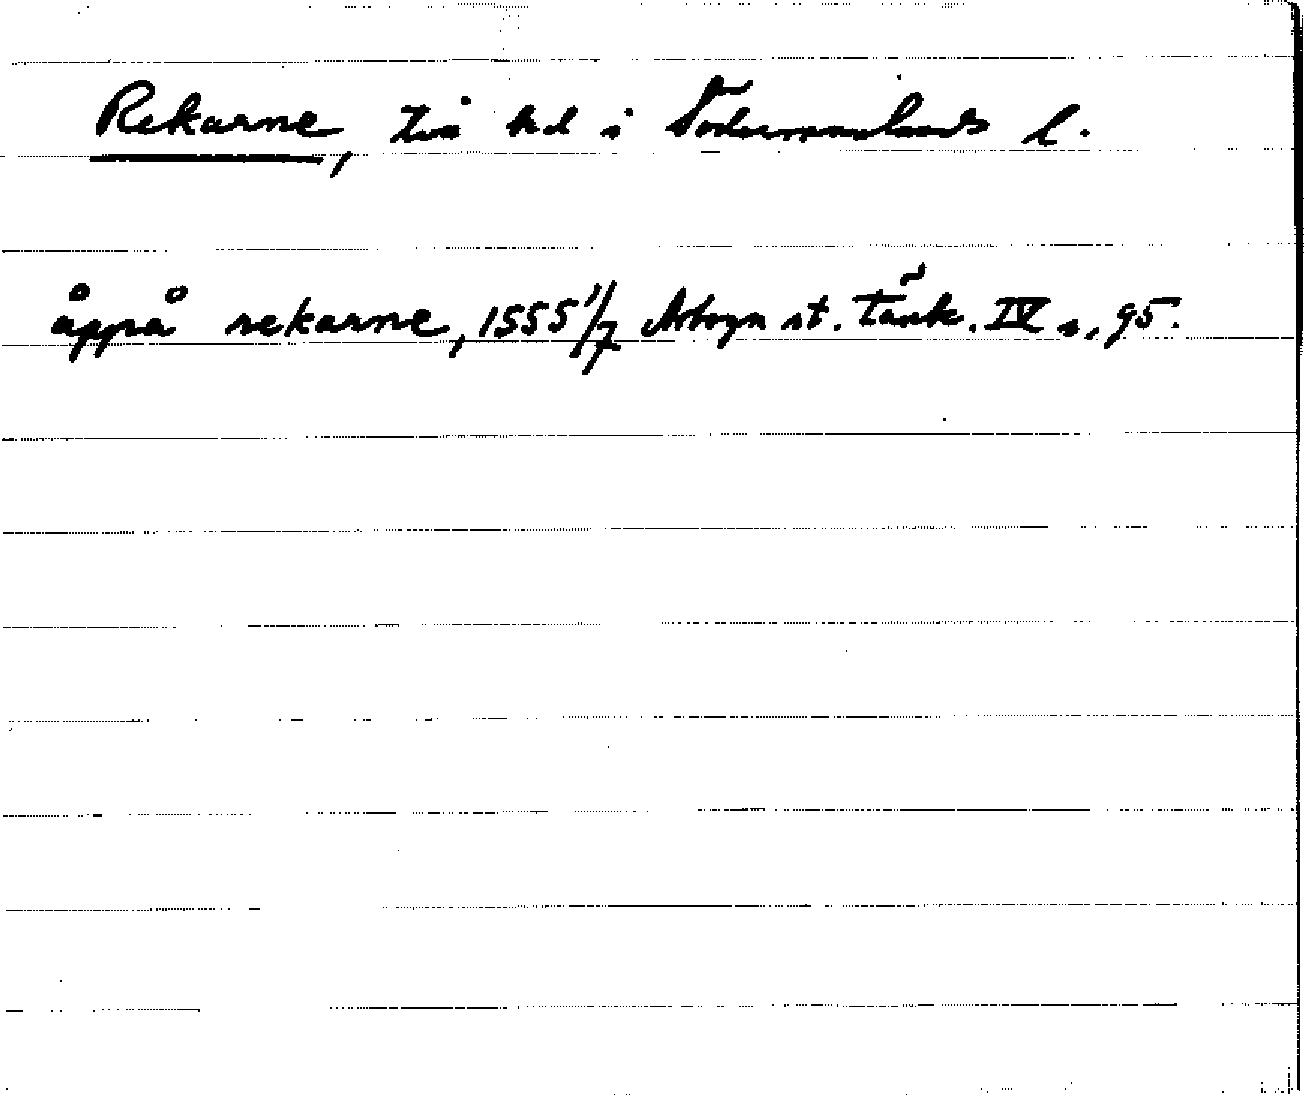 Rekarne, två hd i Södermanlands l.
åppå rekarne, 1555 1/7 Arboga st. Tänk. IV s. 95.